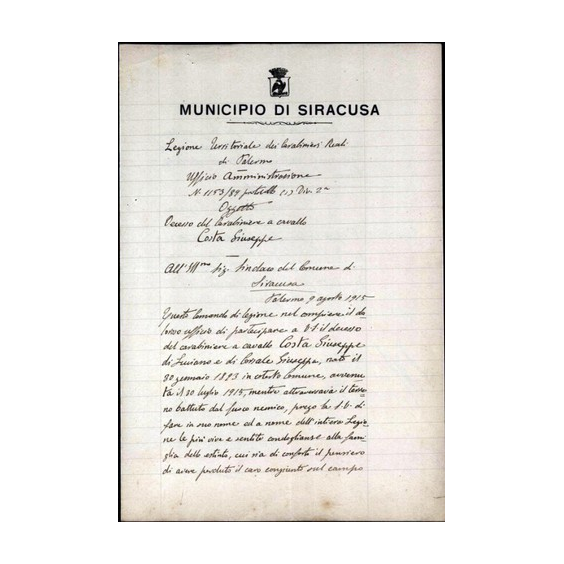 MUNICIPIO DI SIRACUSA
Legione Territoriale dei Carabinieri Reali
di Palermo
Ufficio Amministrazione
N. 1153/89 Div. 2a
Oggetto
Decesso del Carabiniere a cavallo
Costa Giuseppe
All'Ill.mo Sig. Sindaco del Comune di
Siracusa
Palermo 9 agosto 1915
Questo Comando di legione nel compiere il do-
loroso ufficio di partecipare a V.S. il decesso
del carabiniere a cavallo Costa Giuseppe
di Luciano e di Giuseppa, nato il
30 gennaio 1893 in cotesto Comune, avvenu-
ta il 20 luglio 1915, mentre attraversava il terre-
no battuto dal fuoco nemico, prego la S.V. di
fare in suo nome ed a nome dell'intera Legio-
ne le più vive e sentite condoglianze alla fami-
glia dello estinto, cui sia di conforto il pensiero
di avere perduto il caro congiunto sul campo